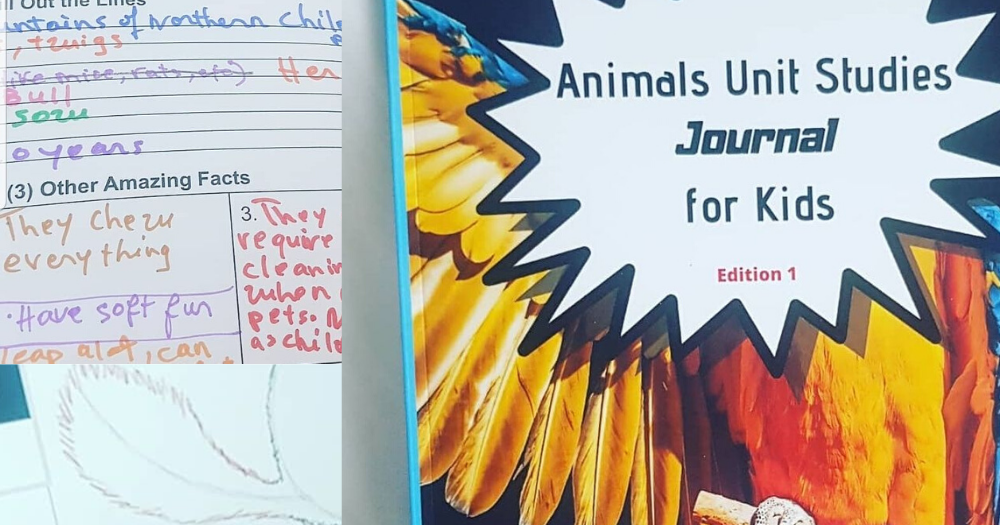 Out the Lines
untains of Northern Chile
, twigs
like mice, rats, etc). Her
Bull
0 years
(3) Other Amazing Facts
They chew
everything
3. They
require
cleanin
when
pets.
as chile
· Have soft fur
leap alot, can
Animals Unit Studies
Journal
for Kids
Edition 1